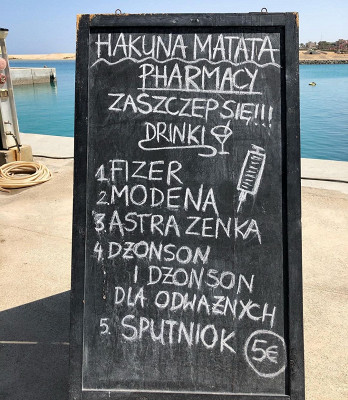 HAKUNA MATATA
PHARMACY
ZASZCZEP SIĘ!!!
DRINKI
1. FIZER
2 MODENA
3. ASTRA ZENKA
4. DŻONSON
I DŻONSON
DLA ODWAŻNYCH
5. SPUTNIOK
5€